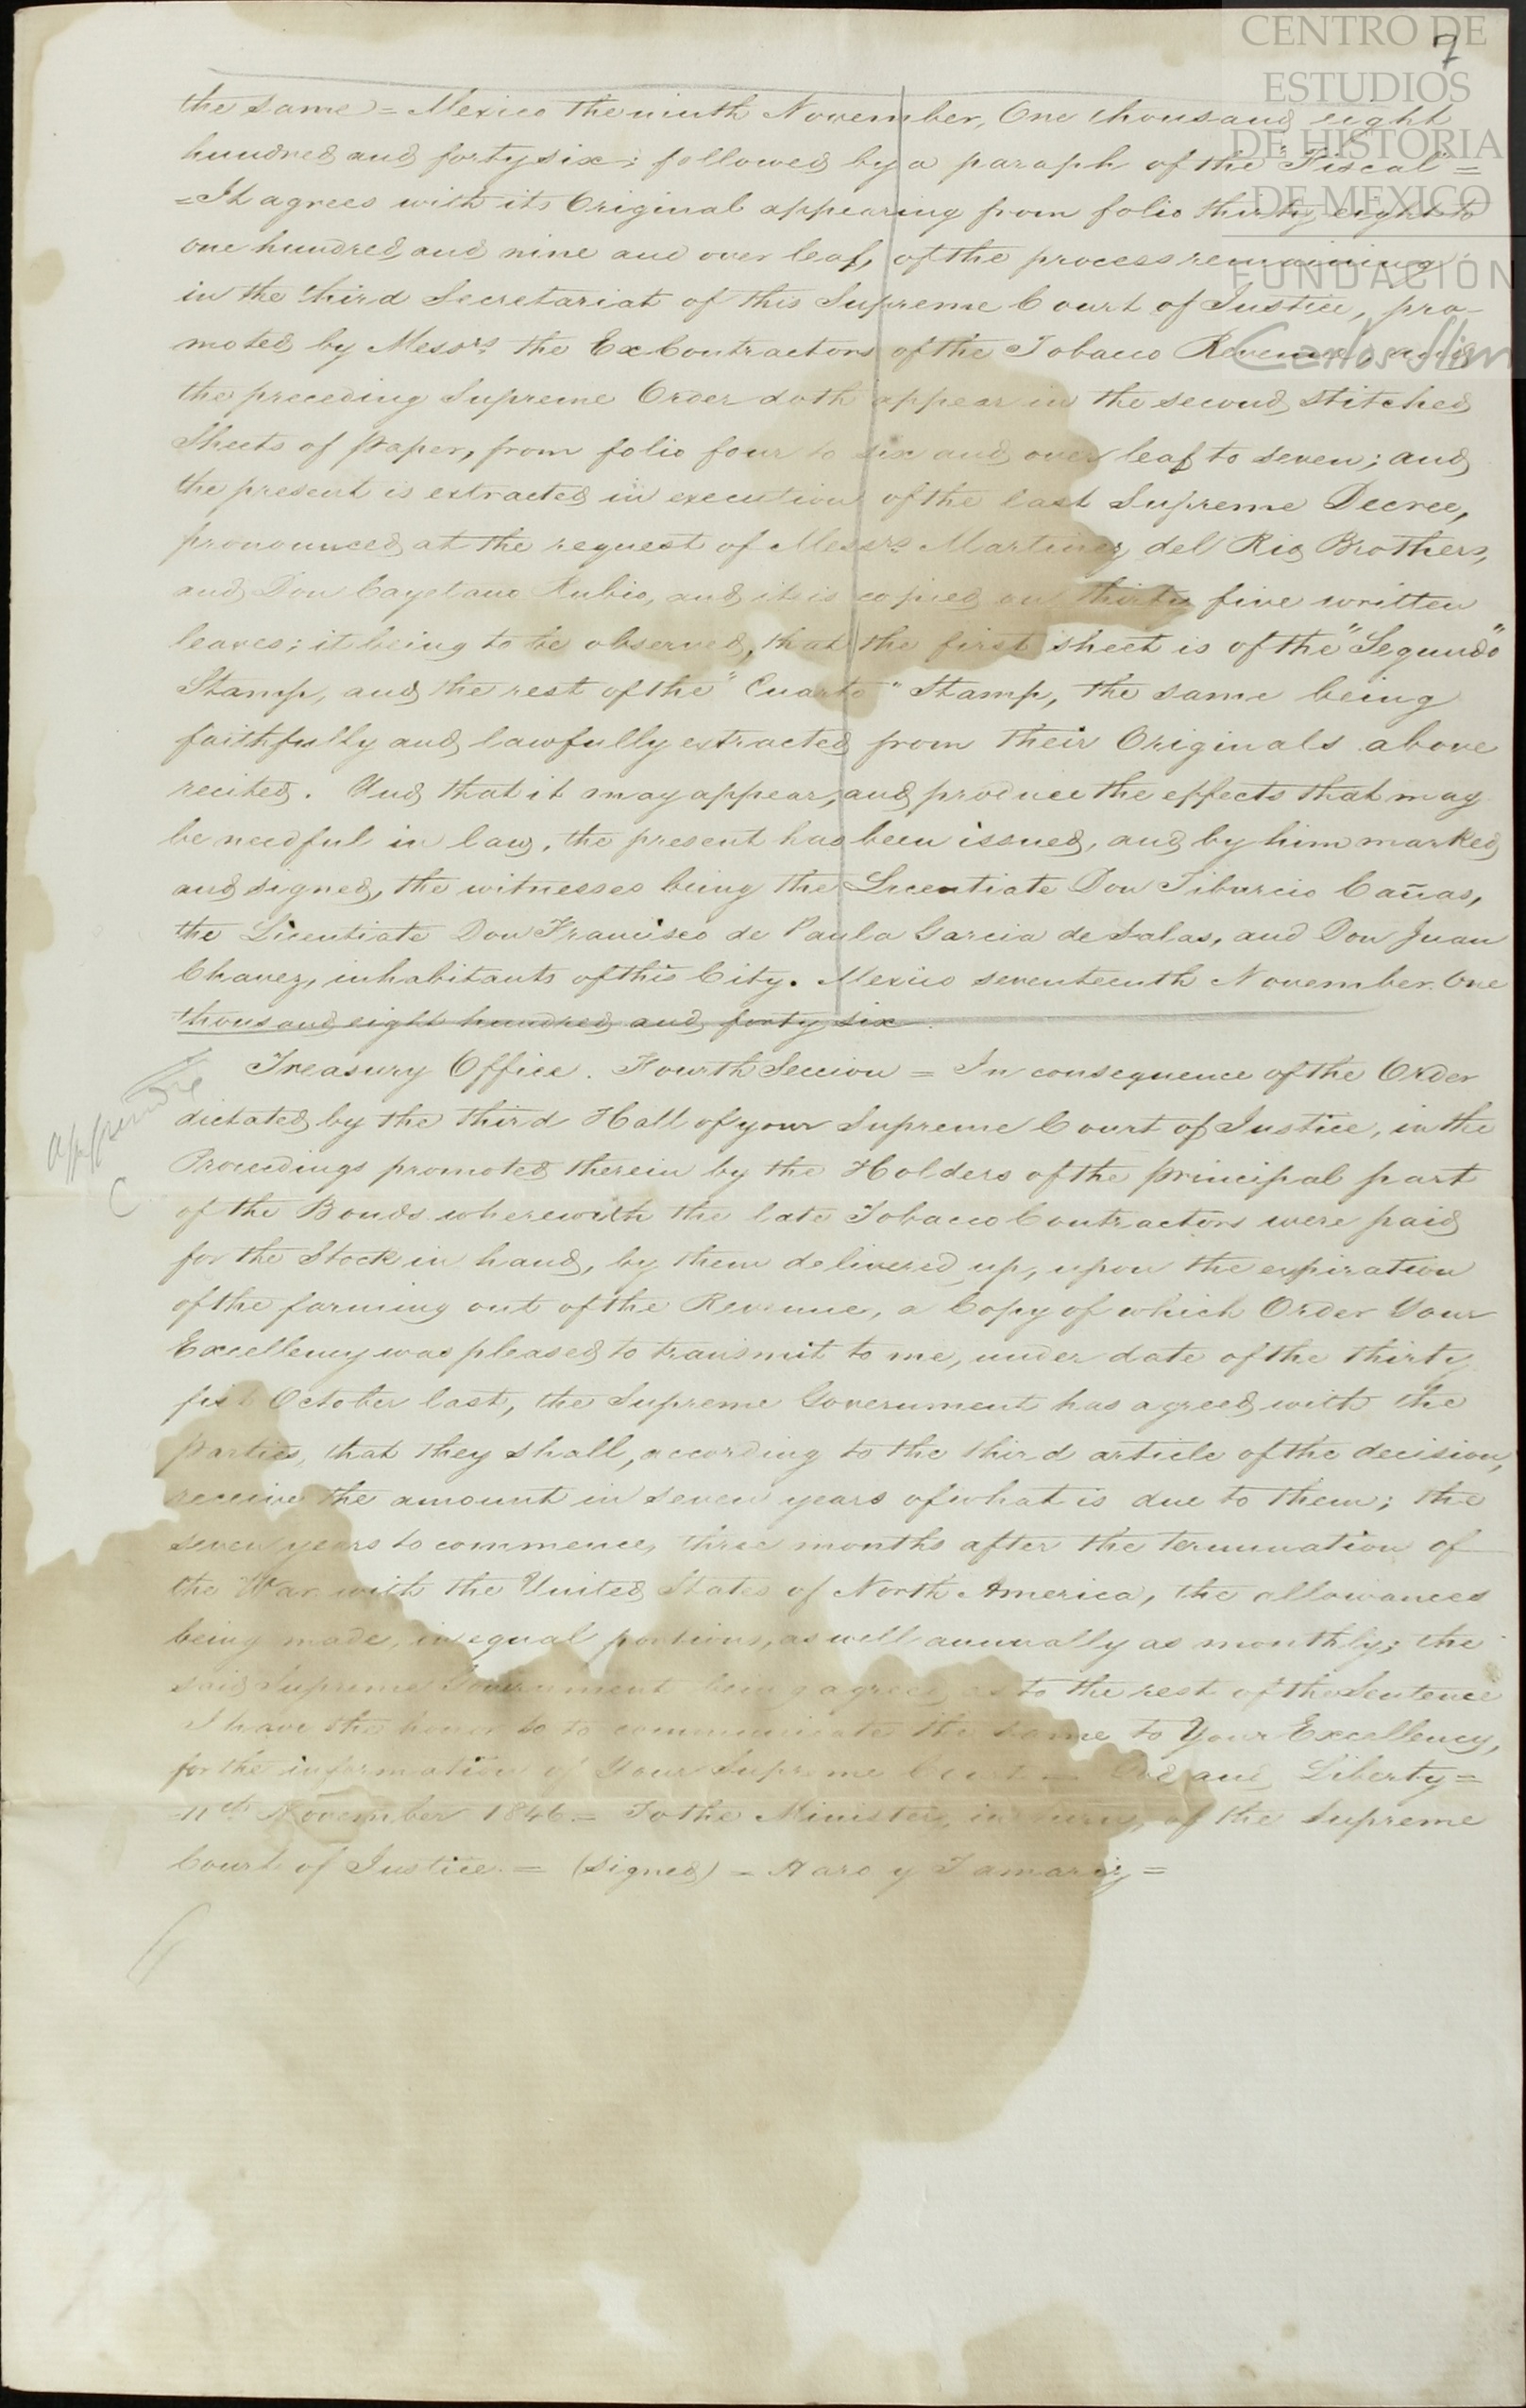 CENTRO DE
ESTUDIOS
DE HISTORIA
DE MEXICO
FUNDACIÓN
Carlos Slim
7
the same = Mexico the ninth November, One thousand eight
hundred and forty six: followed by a paraph of the "Fiscal" =
= It agrees with its Original appearing from folio thirty eight to
one hundred and nine and over leaf, of the process remaining
in the third Secretariat of this Supreme Court of Justice, pro-
moted by Messrs. the Ex Contractors of the Tobacco Revenue, and
the preceding Supreme Order doth appear in the second stitched
Sheets of paper, from folio four to six and over leaf to seven; and
the present is extracted in execution of the last Supreme Decree,
pronounced at the request of Messrs Martinez del Rio Brothers,
and Don Cayetano Rubio, and it is copied on thirty five written
leaves; it being to be observed, that the first sheet is of the "Segundo"
Stamp, and the rest of the "Cuarto" Stamp, the same being
faithfully and lawfully extracted from their Originals above
recited. And that it may appear, and produce the effects that may
be needful in law, the present has been issued, and by him marked
and signed, the witnesses being the Licentiate Don Tiburcio Cañas,
the Licentiate Don Francisco de Paula Garcia de Salas, and Don Juan
Chavez, inhabitants of this City. Mexico seventeenth November One
thousand eight hundred and forty six
Treasury Office. Fourth Seccion = In consequence of the Order
dictated by the third Hall of your Supreme Court of Justice, in the
Proceedings promoted therein by the Holders of the principal part
of the Bonds wherewith the late Tobacco Contractors were paid
for the Stock in hand, by them delivered up, upon the expiration
of the farming out of the Revenue, a Copy of which Order Your
Excellency was pleased to transmit to me, under date of the thirty
fist October last, the Supreme Government has agreed with the
parties, that they shall, according to the third article of the decision,
receive the amount in seven years of what is due to them; the
seven years to commence, three months after the termination of
the War with the United States of North America, the allowances
being made, in equal portions, as well annually as monthly; the
said Supreme Government being agreed as to the rest of the Sentence
I have the honor so to communicate the same to Your Excellency,
for the information of Your Supreme Court = God and Liberty =
= 11th November 1846 = To the Minister, in turn, of the Supreme
Court of Justice = (signed) = Haro y Tamariz =
appendix
C